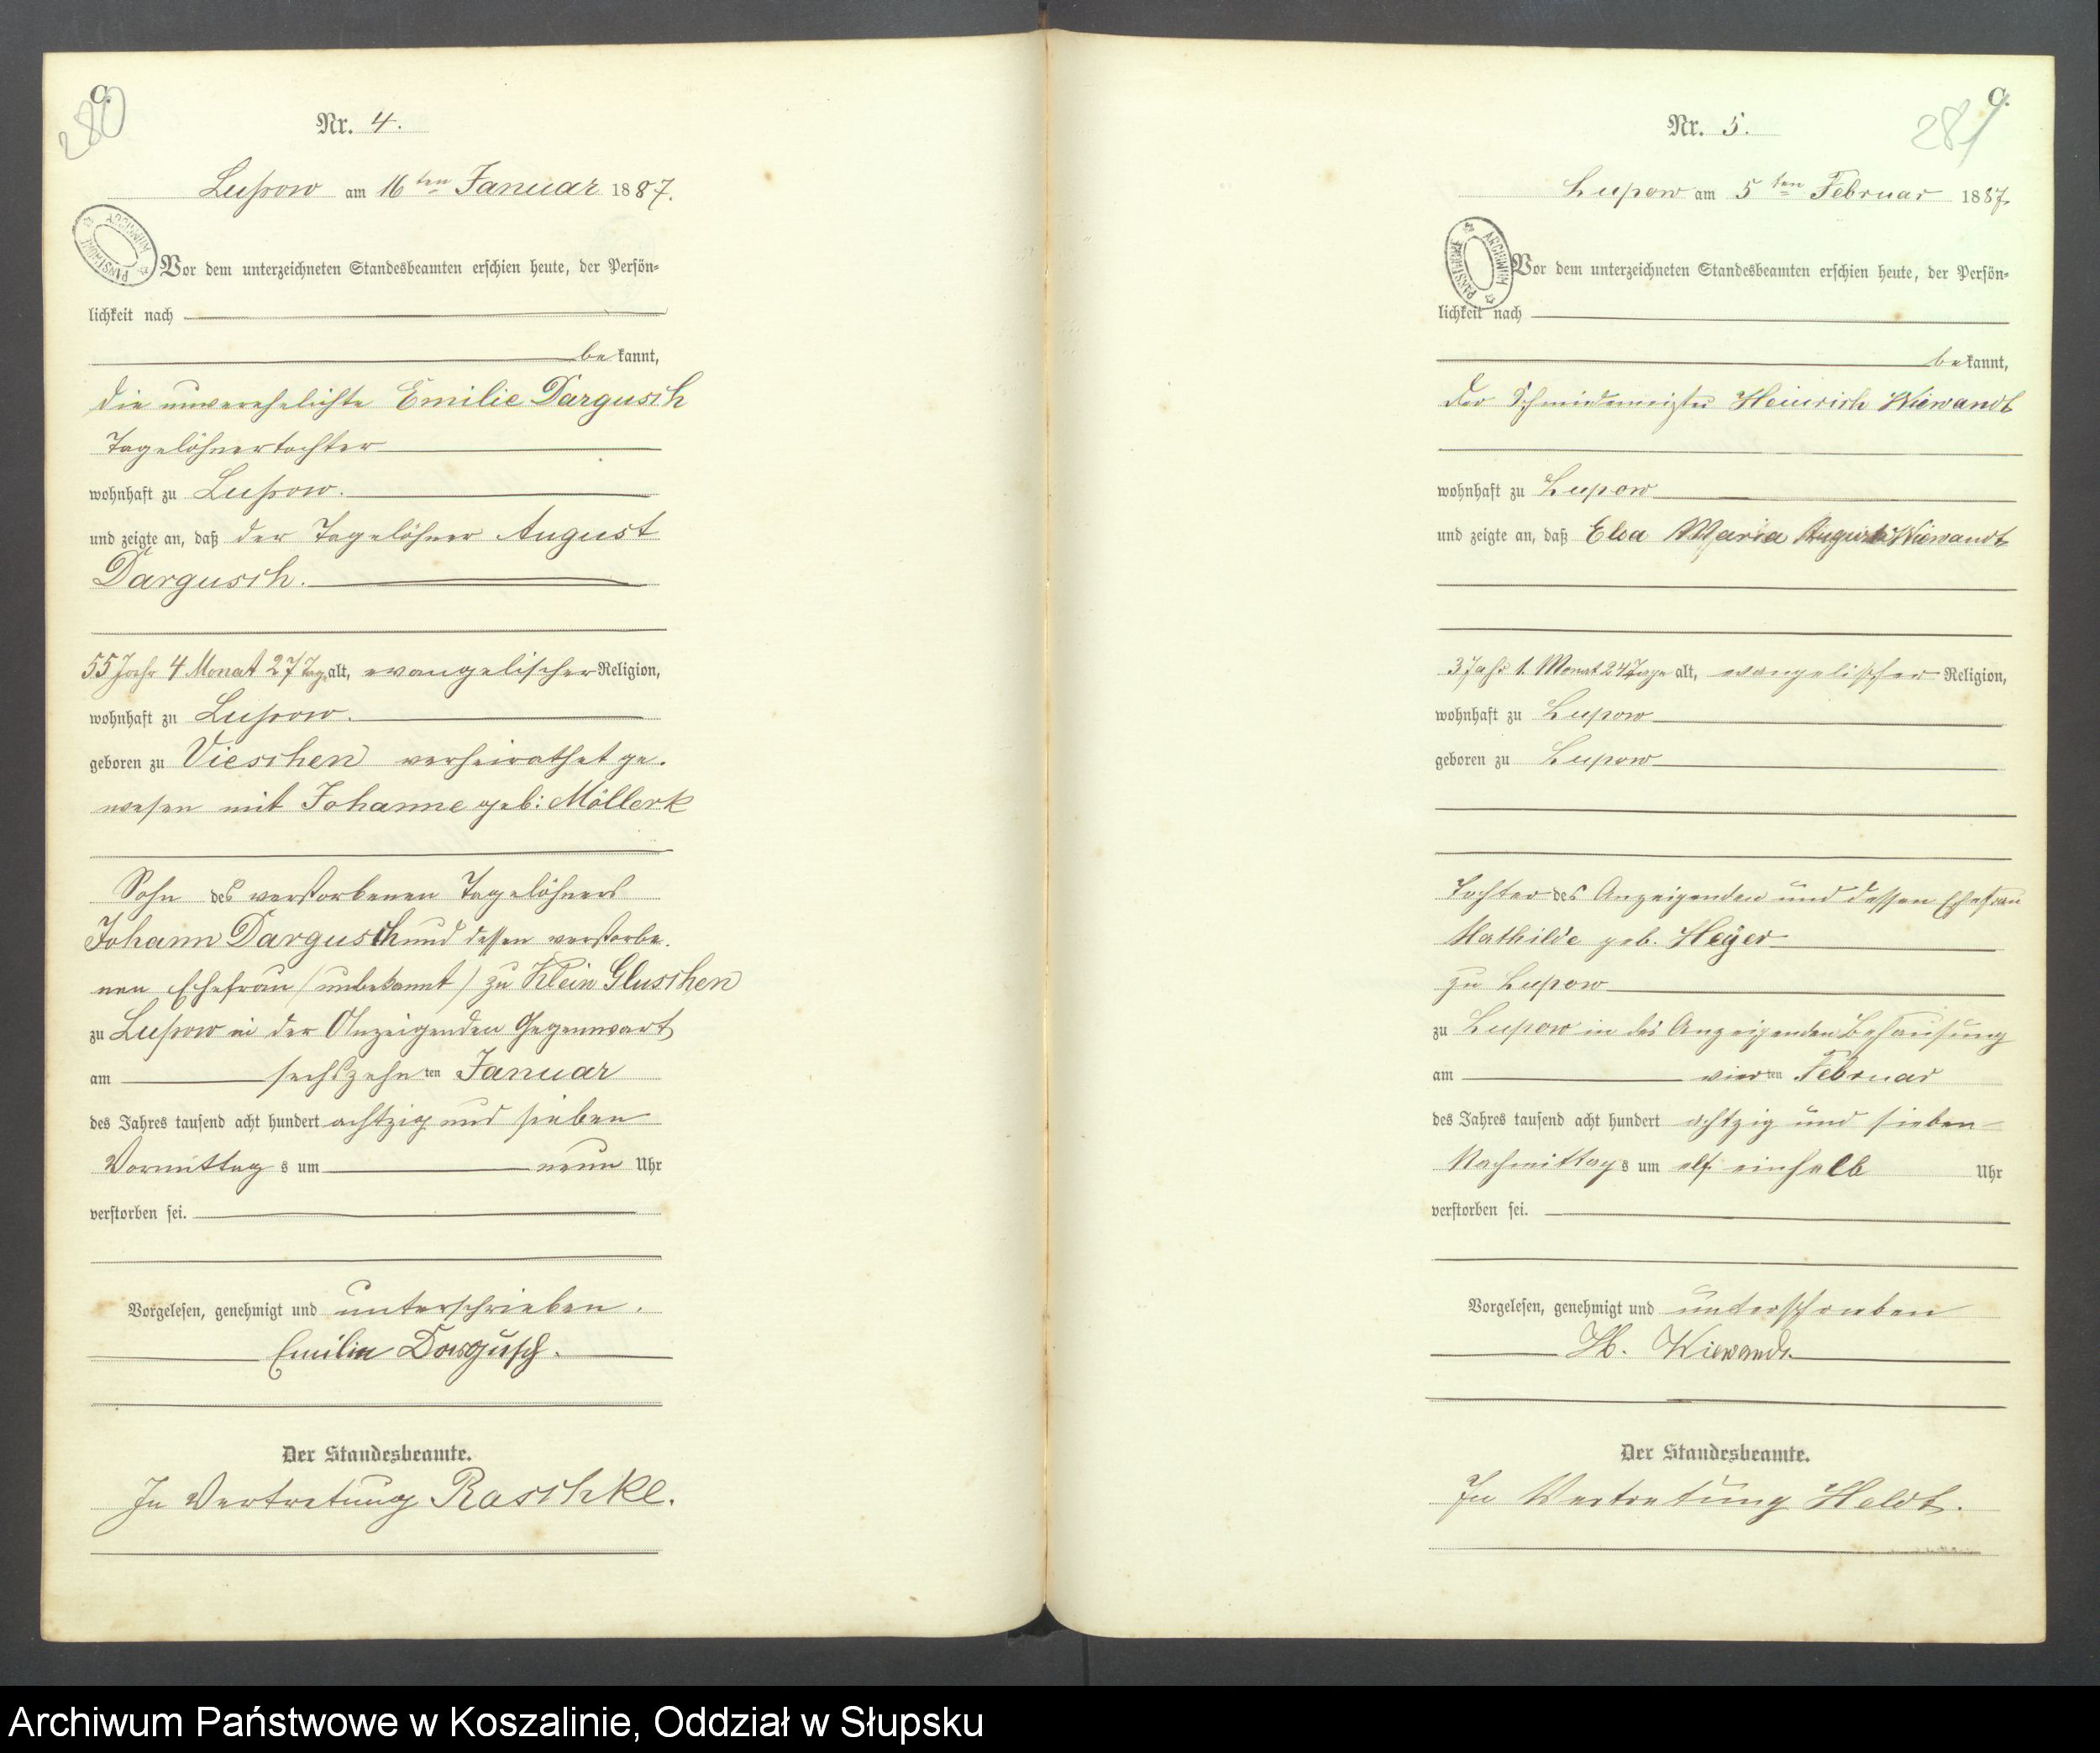 C.
280
Nr. 4.
Lupow am 16ten Januar 1887.
ARCHIWUM PAŃSTWOWE
Vor dem unterzeichneten Standesbeamten erschien heute, der Persön-
lichkeit nach
bekannt,
die unverehelichte Emilie Dargusch
Tagelöhnertochter
wohnhaft zu Lupow.
und zeigte an, daß der Tagelöhner August
Dargusch.
55 Jahr 4 Monat 27 Tag alt, evangelischer Religion,
wohnhaft zu Lupow.
geboren zu Vieschen verheirathet ge-
wesen mit Johanne geb: Möllerk
Sohn des verstorbenen Tagelöhners
Johann Dargusch und dessen verstorbe-
nen Ehefrau (unbekannt) zu Klein Gluschen
zu Lupow in der Anzeigenden Gegenwart
am sechszehnten Januar
des Jahres tausend acht hundert achtzig und sieben
Vormittags um neun Uhr
verstorben sei.
Vorgelesen, genehmigt und unterschrieben.
Emilie Dargusch.
Der Standesbeamte.
In Vertretung Raschke.
C.
281
Nr. 5.
Lupow am 5ten Februar 1887.
ARCHIWUM PAŃSTWOWE
Vor dem unterzeichneten Standesbeamten erschien heute, der Persön-
lichkeit nach
bekannt,
der Schmiedemeister Heinrich Wiewandt
wohnhaft zu Lupow
und zeigte an, daß Elsa Maria Auguste Wiewandt
3 Jahr 1. Monat 24 Tage alt, evangelischer Religion,
wohnhaft zu Lupow
geboren zu Lupow
Tochter des Anzeigenden und dessen Ehefrau
Mathilde geb. Heÿer
zu Lupow
zu Lupow in des Anzeigenden Behausung
am vierten Februar
des Jahres tausend acht hundert achtzig und sieben
Nachmittags um elf einhalb Uhr
verstorben sei.
Vorgelesen, genehmigt und unterschrieben
H. Wiewandt.
Der Standesbeamte.
In Vertretung Heldt.
Archiwum Państwowe w Koszalinie, Oddział w Słupsku